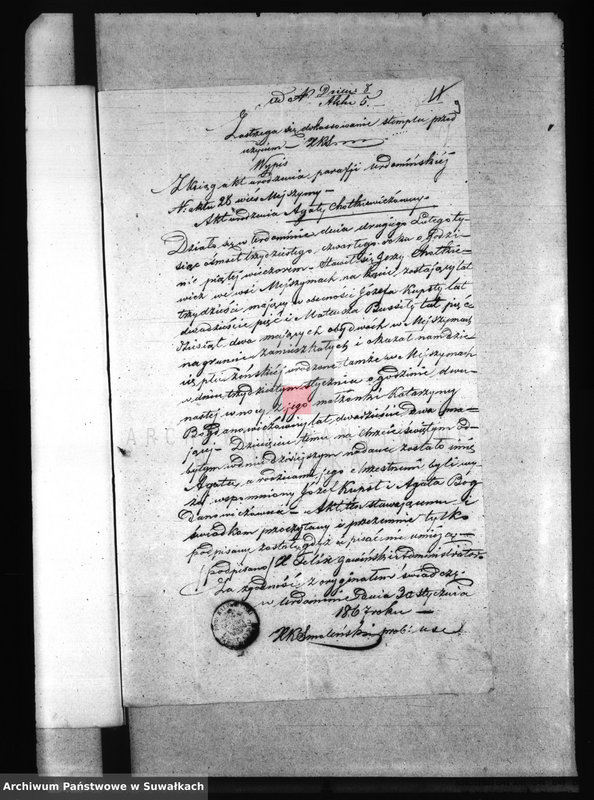 ad Nr Dzien: 8
Aktu 5.
Zastrzega się dokassowanie stempla przed
użyciem – XKS
Wypis
Z Ksiąg akt urodzenia parafji Urdomińskiej
Nr aktu 28 wieś Mejszymy –
Akt urodzenia Agaty Chotkiewiczówny.
Działo się w Urdominie dnia drugiego Lutego ty-
siąc ośmset trzydziestego czwartego roku o godzi-
nie piątej wieczorem. Stawił się Jerzy Chotkie-
wicz we wsi Mejszymach na kącie zostający lat
trzydzieści mający w obecności Józefa Kupsty lat
dwadzieście pięć i Mateusza Bussiły lat pięć
dziesiąt dwa mających obydwóch w Mejszymach
na gruncie zamieszkałych i okazał nam dzie
cię płci żeńskiej urodzone tamże w Mejszymach
w dniu trzydziestym stycznia o godzinie dwu-
nastej w nocy z jego małżonki Katarzyny
Bogdanowiczówny lat dwadzieście dwa ma-
jącej – Dziecięciu temu na chrzcie świętym od-
bytym w dniu dzisiejszym nadane zostało imię
Agata, a rodzicami jego chrzestnemi byli wy-
żej wspomniony Józef Kupst i Agata Bog
danowiczówna – Akt ten stawającemu i
świadkom przeczytany i przezemnie tylko
podpisany został, gdyż ci pisać nie umieją –
/podpisano/ X Felix Gawiński Administrator
Za zgodność z oryginałem świadczę.
w Urdominie Dnia 30 stycznia
1867 roku –
XKSmoleński prob: usc
Archiwum Państwowe w Suwałkach